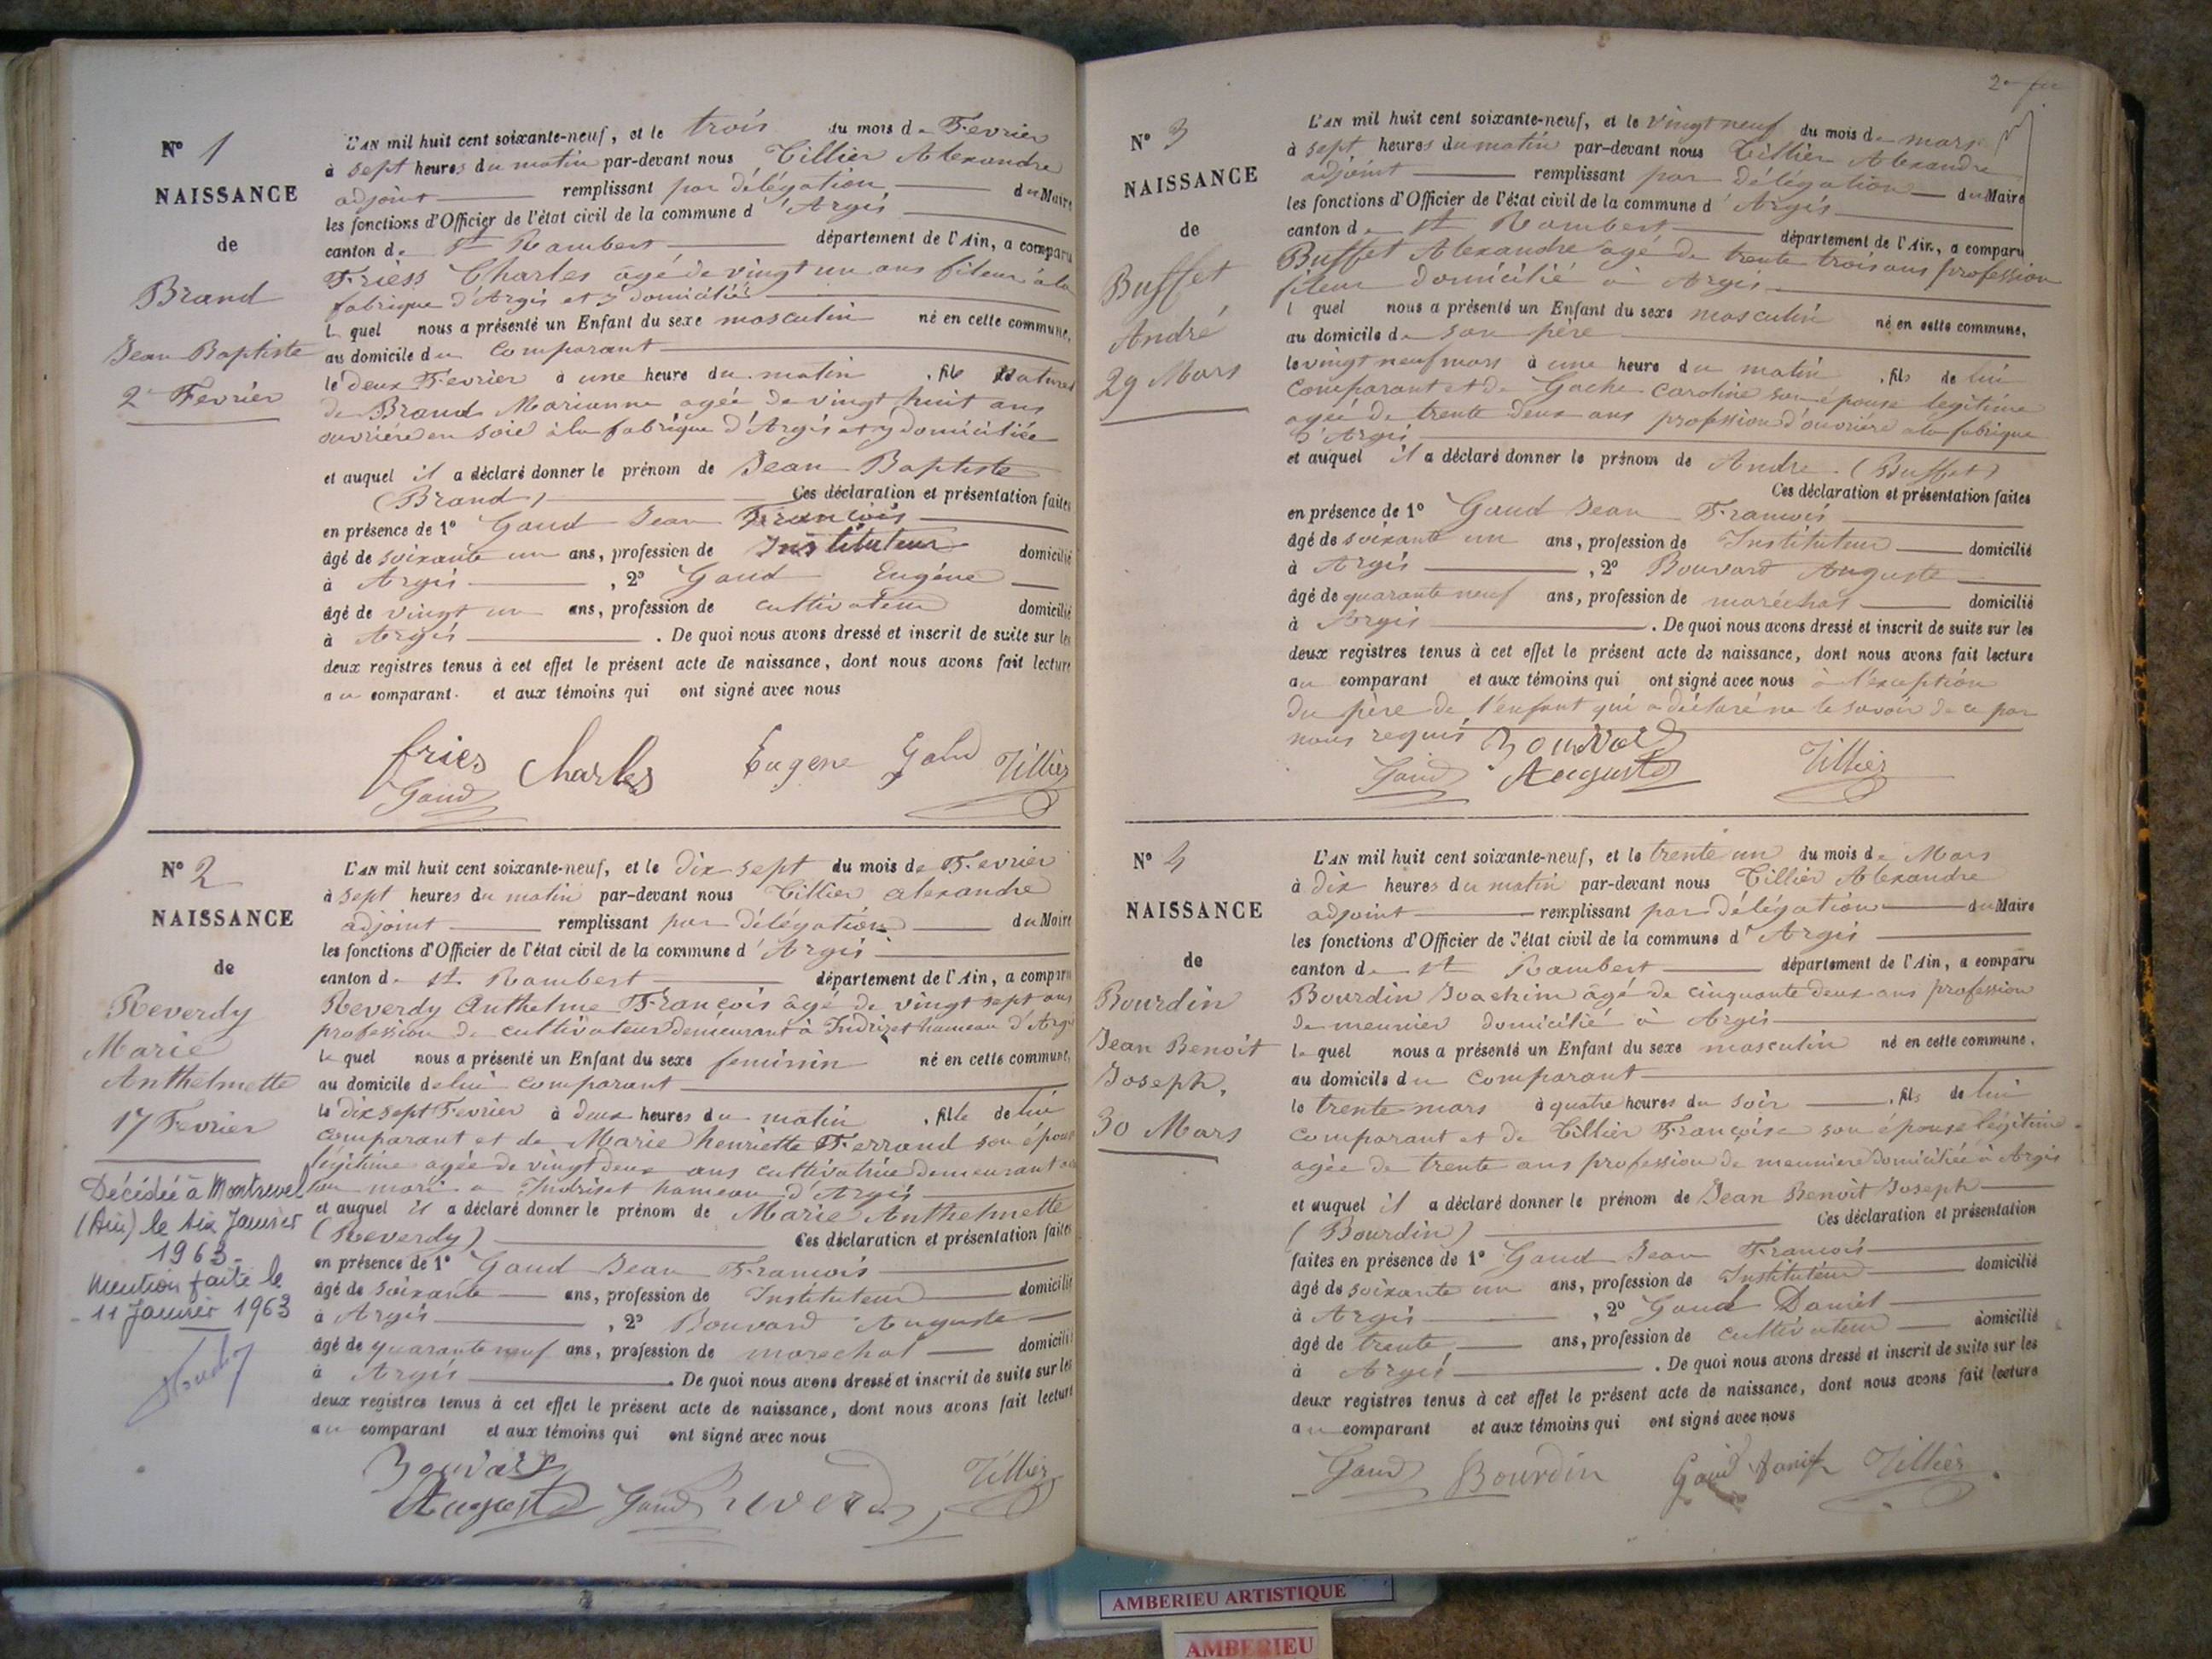 N° 1
NAISSANCE
de
Brand
Jean Baptiste
2 Fevrier
L'AN mil huit cent soixante-neuf, et le trois du mois de Fevrier
à sept heures du matin par-devant nous Tillier Alexandre
adjoint remplissant par délégation du Maire
les fonctions d'Officier de l'état civil de la commune d'Argis
canton de St Rambert département de l'Ain, a comparu
Friess Charles âgé de vingt un ans fileur à la
fabrique d'Argis et y domicilié
lequel nous a présenté un Enfant du sexe masculin né en cette commune,
au domicile du comparant
le deux Fevrier à une heure du matin, fils naturel
de Brand Marianne agée de vingt huit ans
ouvrière en soie à la fabrique d'Argis et y domiciliée
et auquel il a déclaré donner le prénom de Jean Baptiste
(Brand) Ces déclaration et présentation faites
en présence de 1° Gaud Jean François
âgé de soixante un ans, profession de Instituteur domicilié
à Argis, 2° Gaud Eugène
âgé de vingt un ans, profession de cultivateur domicilié
à Argis. De quoi nous avons dressé et inscrit de suite sur les
deux registres tenus à cet effet le présent acte de naissance, dont nous avons fait lecture
au comparant et aux témoins qui ont signé avec nous
fries Charles Eugene Gaud Tillier
Gaud
N° 2
NAISSANCE
de
Reverdy
Marie
Anthelmette
17 Fevrier
Décédée à Montrevel
(Ain) le dix Janvier
1963.
Mention faite le
11 Janvier 1963
L'AN mil huit cent soixante-neuf, et le dix sept du mois de Fevrier
à sept heures du matin par-devant nous Tillier alexandre
adjoint remplissant par délégation du Maire
les fonctions d'Officier de l'état civil de la commune d'Argis
canton de St Rambert département de l'Ain, a comparu
Reverdy Anthelme François âgé de vingt sept ans
profession de cultivateur demeurant à Indrizet hameau d'Argis
lequel nous a présenté un Enfant du sexe feminin né en cette commune,
au domicile de lui comparant
le dix sept Fevrier à deux heures du matin, fille de lui
comparant et de Marie henriette Ferrand son épouse
légitime agée de vingt deux ans cultivatrice demeurant
son mari a Indriset hameau d'Argis
et auquel il a déclaré donner le prénom de Marie Anthelmette
(Reverdy) Ces déclaration et présentation faites
en présence de 1° Gaud Jean Francois
âgé de soixante ans, profession de Instituteur domicilié
à Argis, 2° Bouvard Auguste
âgé de quarante neuf ans, profession de marechal domicilié
à Argis. De quoi nous avons dressé et inscrit de suite sur les
deux registres tenus à cet effet le présent acte de naissance, dont nous avons fait lecture
au comparant et aux témoins qui ont signé avec nous
Bouvard
Auguste Gaud Reverdy Tillier
N° 3
NAISSANCE
de
Buffet
André
29 Mars
L'AN mil huit cent soixante-neuf, et le vingt neuf du mois de mars
à sept heures du matin par-devant nous Tillier Alexandre
adjoint remplissant par délégation du Maire
les fonctions d'Officier de l'état civil de la commune d'Argis
canton de St Rambert département de l'Ain, a comparu
Buffet Alexandre agé de trente trois ans profession
fileur domicilié à Argis
lequel nous a présenté un Enfant du sexe masculin né en cette commune,
au domicile de son père
le vingt neuf mars à une heure du matin, fils de lui
comparant et de Gache Caroline son épouse legitime
agée de trente deux ans profession d'ouvrière a la fabrique
d'Argis
et auquel il a déclaré donner le prénom de Andre (Buffet)
Ces déclaration et présentation faites
en présence de 1° Gaud Jean Francois
âgé de soixante un ans, profession de Instituteur domicilié
à Argis, 2° Bouvard Auguste
âgé de quarante neuf ans, profession de maréchal domicilié
à Argis. De quoi nous avons dressé et inscrit de suite sur les
deux registres tenus à cet effet le présent acte de naissance, dont nous avons fait lecture
au comparant et aux témoins qui ont signé avec nous à l'exception
du père de l'enfant qui a déclaré ne le savoir de ce par
nous requis Bouvard
Gaud Auguste Tillier
N° 4
NAISSANCE
de
Bourdin
Jean Benoit
Joseph,
30 Mars
L'AN mil huit cent soixante-neuf, et le trente un du mois de Mars
à dix heures du matin par-devant nous Tillier Alexandre
adjoint remplissant par délégation du Maire
les fonctions d'Officier de l'état civil de la commune d'Argis
canton de St Rambert département de l'Ain, a comparu
Bourdin Joachim âgé de cinquante deux ans profession
de meunier domicilié à Argis
lequel nous a présenté un Enfant du sexe masculin né en cette commune,
au domicile du comparant
le trente mars à quatre heures du soir, fils de lui
comparant et de Tillier Françoise son épouse légitime
agée de trente ans profession de meuniere domiciliée à Argis
et auquel il a déclaré donner le prénom de Jean Benoit Joseph
(Bourdin) Ces déclaration et présentation
faites en présence de 1° Gaud Jean Francois
âgé de soixante un ans, profession de Instituteur domicilié
à Argis, 2° Gaud Daniel
âgé de trente ans, profession de cultivateur domicilié
à Argis. De quoi nous avons dressé et inscrit de suite sur les
deux registres tenus à cet effet le présent acte de naissance, dont nous avons fait lecture
au comparant et aux témoins qui ont signé avec nous
Gaud Bourdin Gaud Tillier
AMBERIEU ARTISTIQUE
AMBERIEU